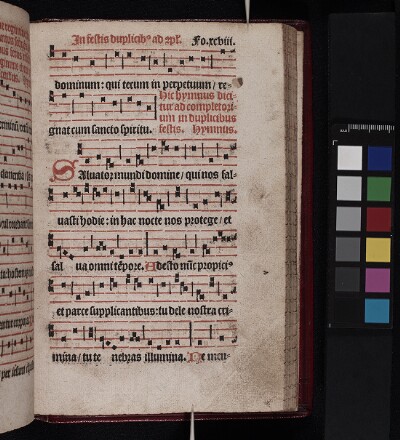 In festis duplicibꝰ ad cpl'. Fo.xcviii.
dominum: qui tecum in perpetuum / re-
gnat cum sancto spiritu.
Hic hymnus dici
tur ad completori-
um in duplicibus
festis. Hymnus.
Saluator mundi domine / qui nos sal-
uasti hodie: in hac nocte nos protege / et
sal ua omni tēpore. Adesto nūc propiciꝰ
et parce supplicantibus: tu dele nostra cri-
mina / tu te nebras illumina. Ne men-